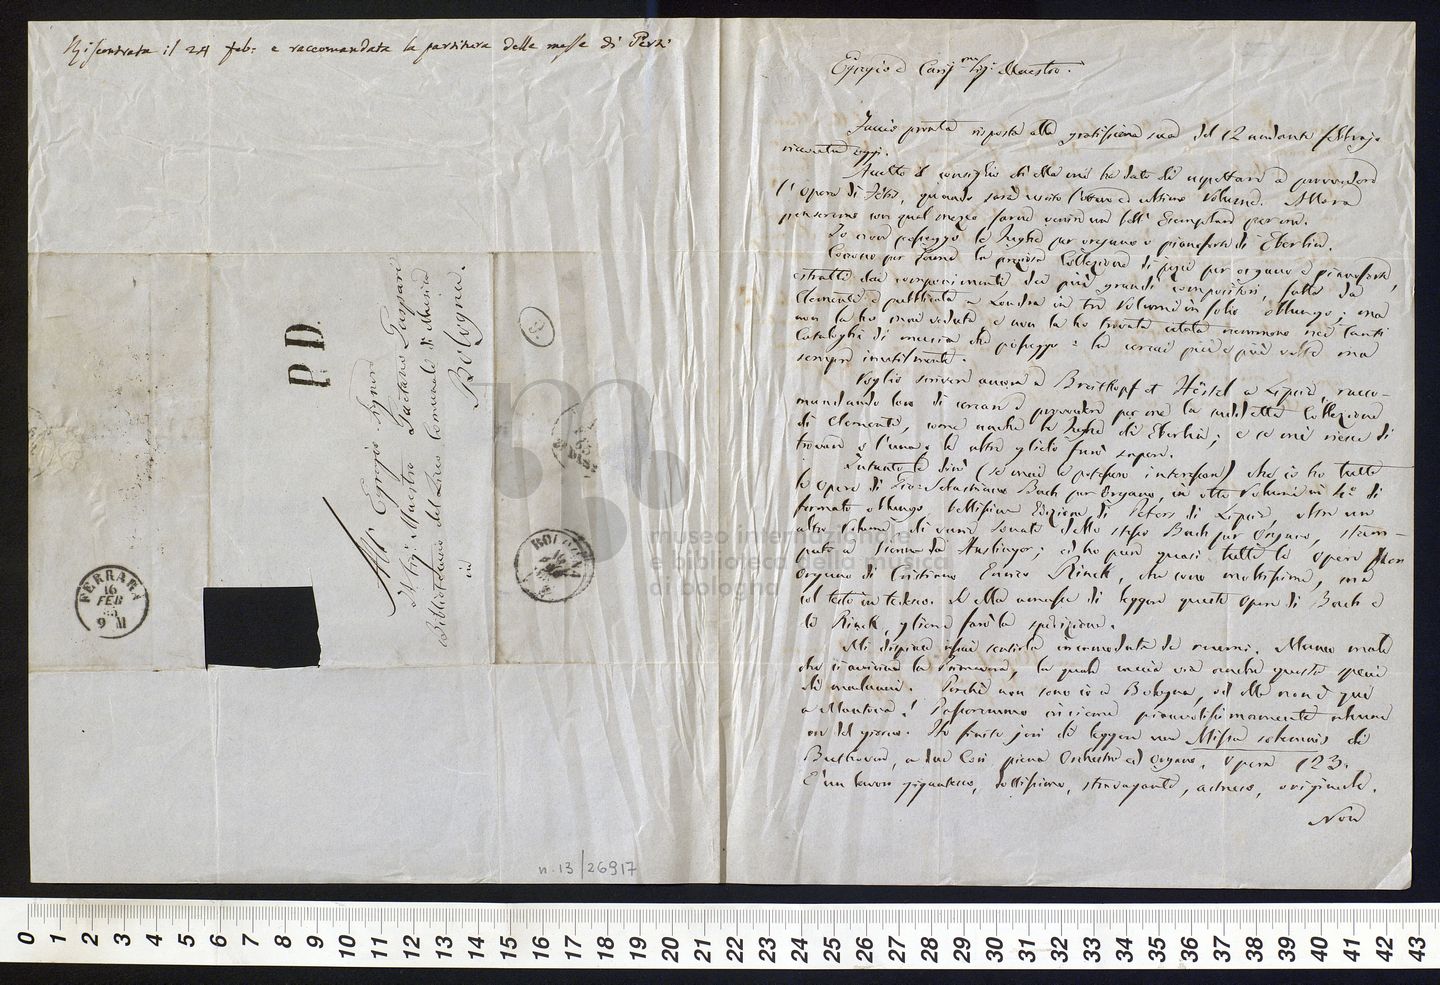 Riscontrata il 24 feb: e raccomandata la partitura delle messe di Perti
P.D.
All' Egregio Signore
Il Sig: Maestro Gaetano Gaspari
Bibliotecario del Liceo Comunale di Musica
in Bologna.
FERRARA
16
FEB
9 M
BOLOGNA
16
n. 13/26917
Egregio e Cariss.mo Sig: Maestro.
Faccio pronta risposta alla gratissima sua del 12 andante febbrajo
ricevuta oggi.
Accetto il consiglio ch'ella mi ha dato di aspettare a provvedere
l'Opera di Fétis, quando sarà uscito l'ottavo ed ultimo volume. Allora
penseremo con qual mezzo farne venire un bell' Esemplare per me.
Io non posseggo le Fughe per organo o pianoforte di Eberlin.
Conosco per fama la preziosa Collezione di pezzi per organo e pianoforte,
estratti dai componimenti dei più grandi compositori fatta da
Clementi e pubblicata a Londra in tre volumi in folio oblungo; ma
non la ho mai veduta, e non la ho trovata citata nemmeno nei tanti
Cataloghi di musica che posseggo: la cercai più e più volte ma
sempre inutilmente.
Voglio scrivere ancora a Breitkopf et Härtel a Lipsia, racco-
mandando loro di cercare e provvedere per me la suddetta Collezione
di Clementi, come anche le Fughe di Eberlin; e se mi riesce di
trovare o l'una o le altre glielo farò sapere.
Intanto le dirò (se mai le potesse interessare) che io ho tutte
le Opere di Gio: Sebastiano Bach per Organo, in otto volumi in 4.o di
formato oblungo, bellissima Edizione di Peters di Lipsia, oltre un
altro volume di varie sonate dello stesso Bach per Organo, stam-
pate a Vienna da Haslinger; ed ho pure quasi tutte le Opere per
Organo di Cristiano Enrico Rinck, che sono moltissime, ma
col testo in tedesco. Se ella amasse di leggere queste Opere di Bach e
di Rinck, gliene farò la spedizione.
Mi dispiace assai sentirla incomodata da reumi. Manco male
che si avvicina la Primavera, la quale caccia via anche questa specie
di malanni. Perchè non sono io a Bologna, od ella non è qui
a Mantova! Passeremmo insieme piacevolissimamente alcune
ore del giorno. Ho finito jeri di leggere una Missa solemnis di
Beethoven, a due Cori piena Orchestra ed Organo, Opera 123.
È un lavoro gigantesco, dottissimo, stravagante, astruso, originale.
Non
museo internazionale
e biblioteca della musica
di bologna
0 1 2 3 4 5 6 7 8 9 10 11 12 13 14 15 16 17 18 19 20 21 22 23 24 25 26 27 28 29 30 31 32 33 34 35 36 37 38 39 40 41 42 43